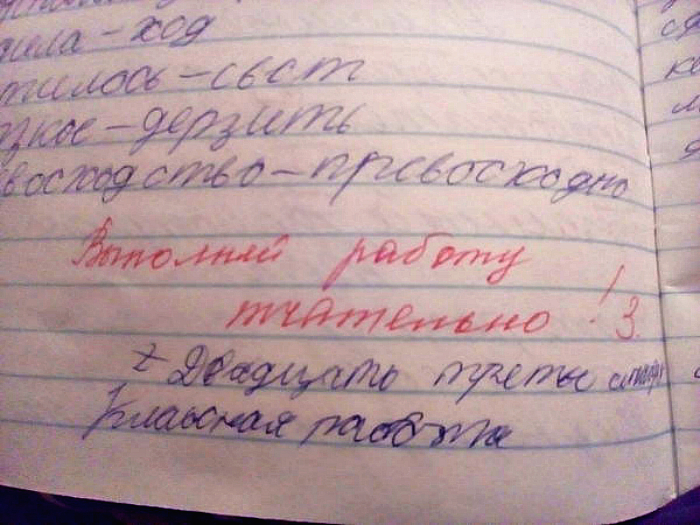 ила - ход
тилось - свст
зкое - дерзить
восходство - превосходно
Выполняй работу
тчательно! 3.
Двадцать третье
Классная работа